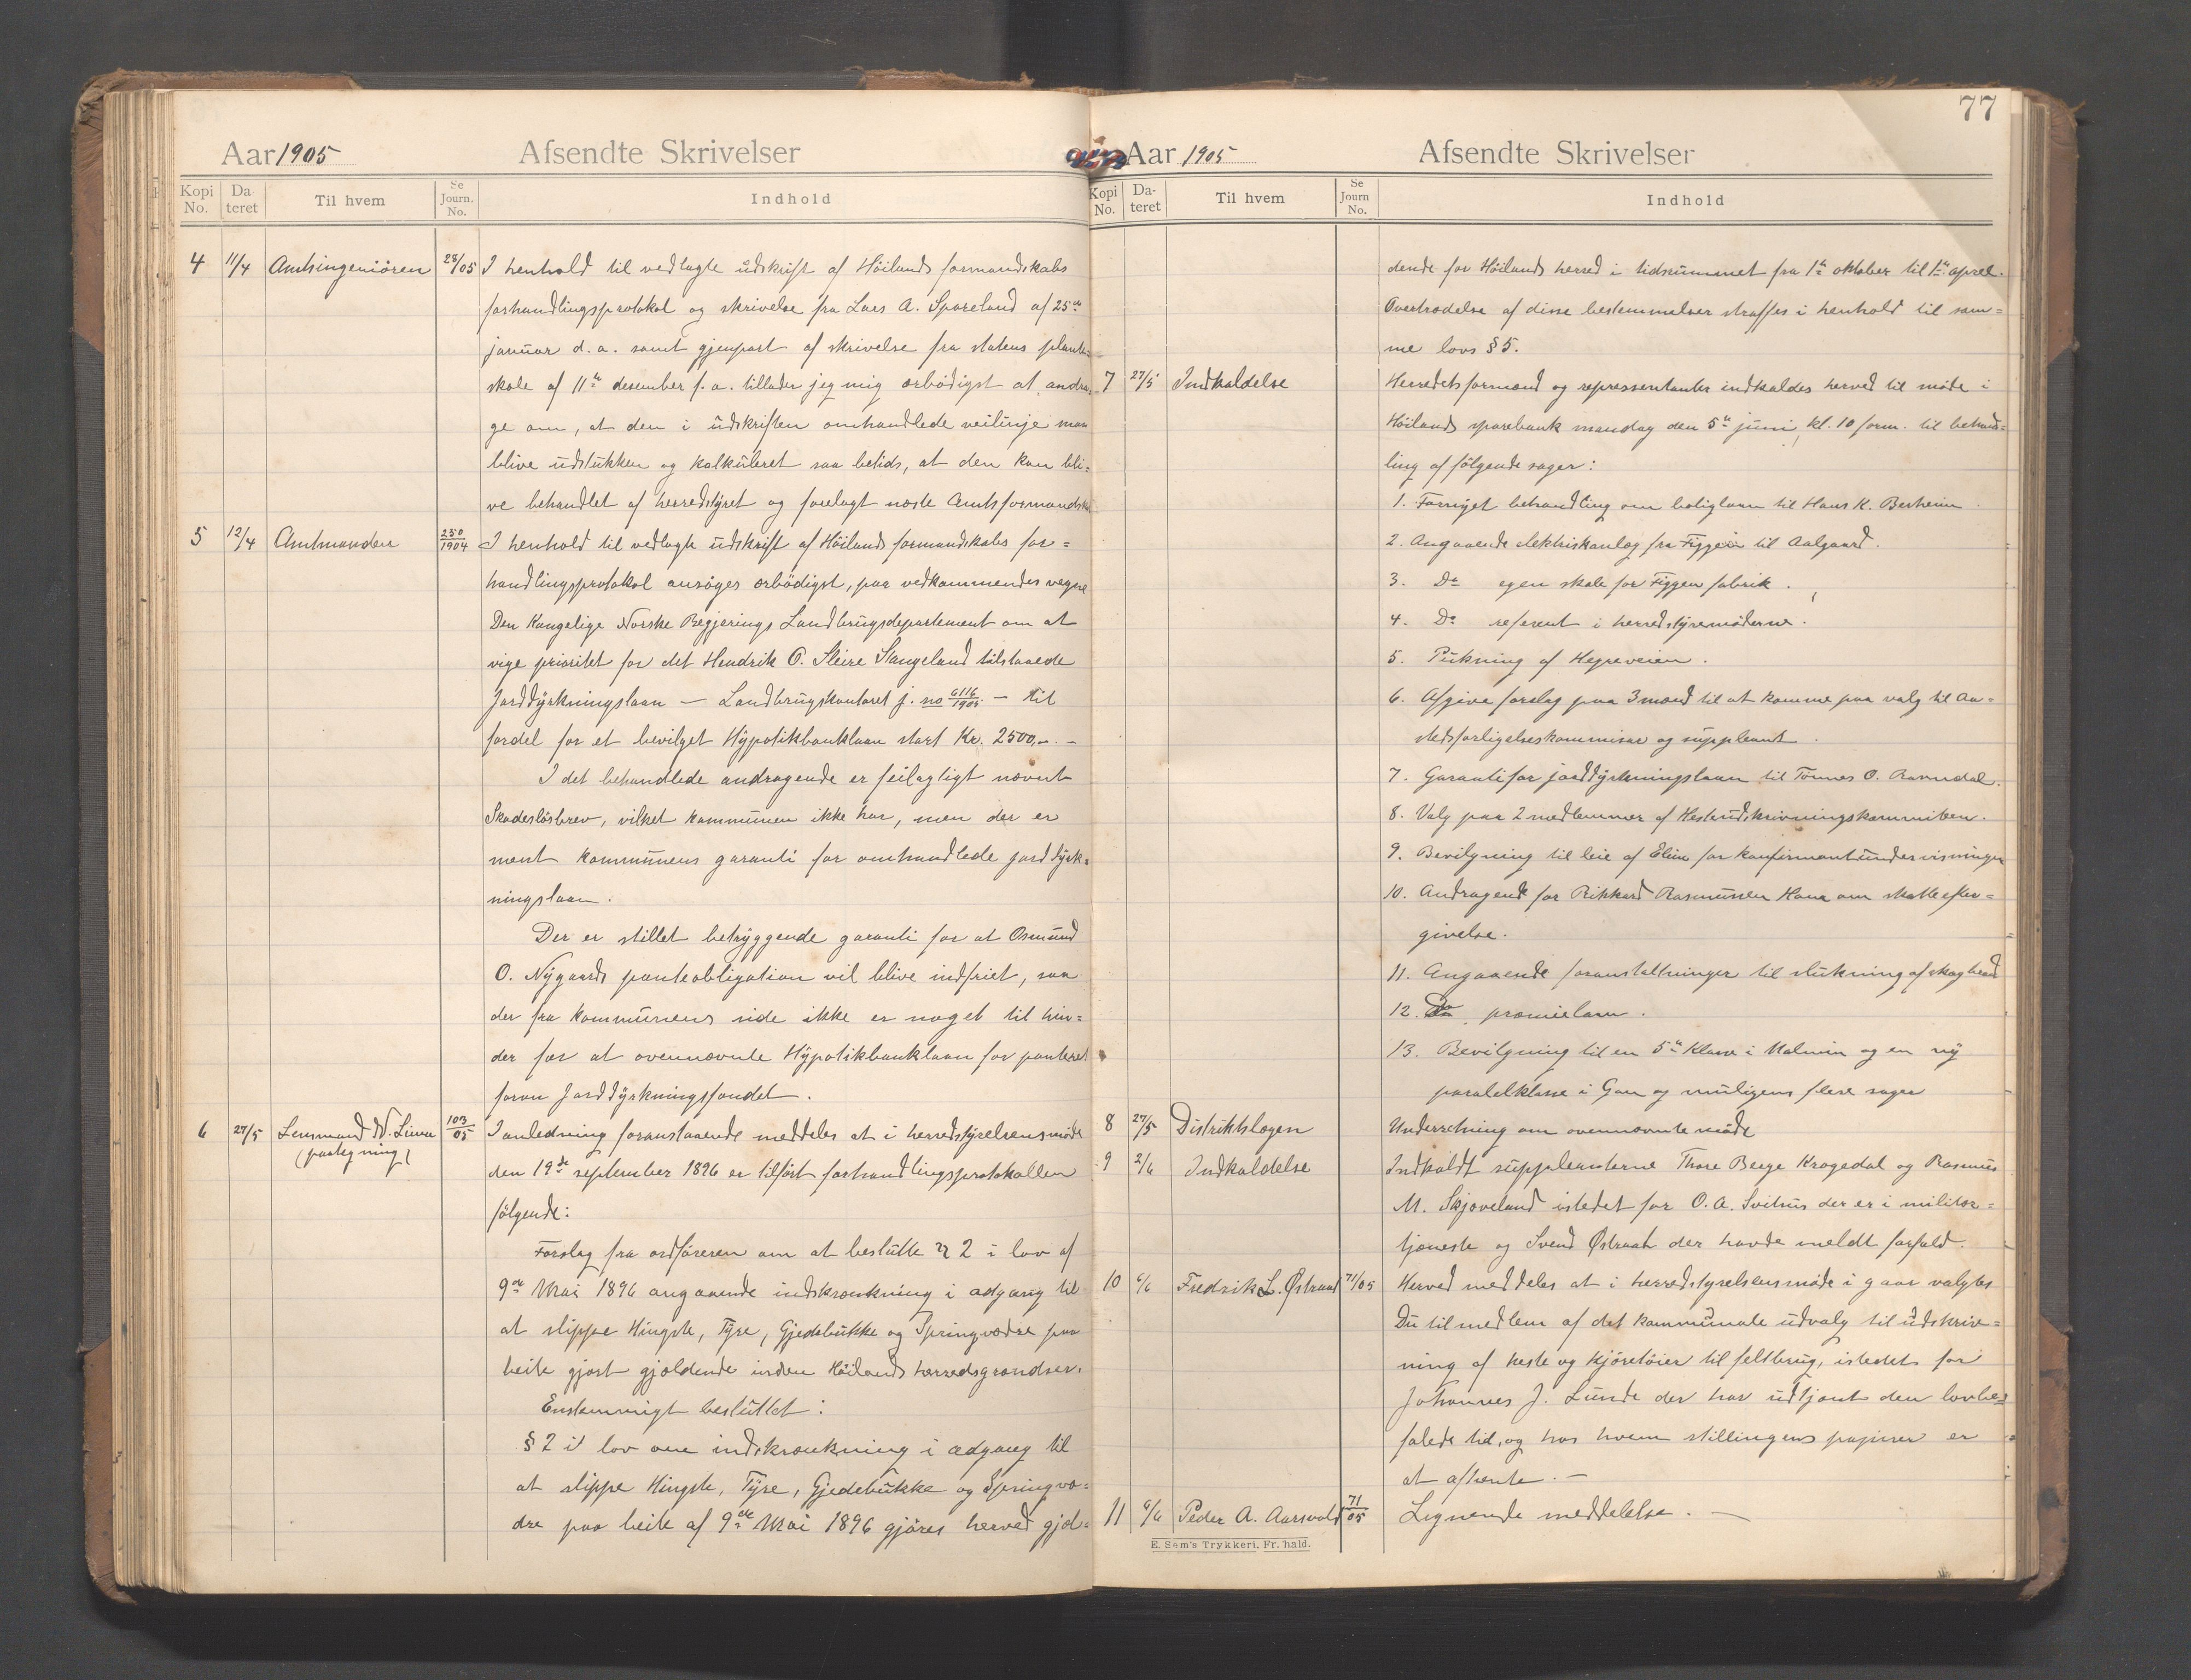 Aar 1905 Afsendte Skrivelser
Kopi No. Da teret Til hvem Se Journ. No. Indhold
4 11/4 Amtsingeniören 28/05 I henhold til vedlagte udskrift af Höilands formandskabs
forhandlingsprotokol og skrivelse fra Lars A. Spareland af 25de
januar d.a. samt gjenpart af skrivelse fra statens plante=
skole af 11te desember f.a. tillader jeg mig ærbödigst at andra=
ge om, at den i udskriften omhandlede veilinje maa
blive udstukken og kalkuleret saa betids, at den kan bli=
ve behandlet af herredstyret og forelagt næste Amtsformandskab
5 12/4 Amtmanden 250/1904 I henhold til vedlagte udskrift af Höilands formandskabs for=
handlingsprotokol ansöges ærbödigst, paa vedkommendes vegne
Den Kongelige Norske Regjerings Landbrugsdepartement om at
vige prioritet for det Hendrik O. Skeie Stangeland tilstaaede
Jorddyrkningslaan — Landbrugskontoret j. no — til
fordel for et bevilget Hypotikbanklaan stort Kr. 2500,-. —
I det behandlede andragende er feilagtigt nævnt
Skadeslösbrev, vilket kommunen ikke har, men der er
ment kommunens garanti for omhandlede jorddyrk=
ningslaan.
Der er stillet betryggende garanti for at Osmund
O. Nygaards panteobligation vil blive indfriet, saa
der fra kommunens side ikke er noget til hin=
der for at ovennævnte Hypotikbanklaan faar panteret
foran Jorddyrkningsfondet.
6 27/5 Lensmand N. Lima 103/05 I anledning foranstaaende meddeles at i herredstyrelsensmöde
(paategning) den 19de september 1896 er tilfört forhandlingsprotokollen
fölgende:
Forslag fra ordföreren om at beslutte § 2 i lov af
9de Mai 1896 angaaende indskrænkning i adgang til
at slippe Hingste, Tyre, Gjedebukke og Springvædre paa
beite gjort gjældende inden Höilands herredsgrændser.
Enstemmigt besluttet:
§ 2 i lov om indskrænkning i adgang til
at slippe Hingste, Tyre, Gjedebukke og Springvæ=
dre paa beite af 9de Mai 1896 gjöres herved gjel=
77
Aar 1905 Afsendte Skrivelser
Kopi No. Da- teret Til hvem Se Journ No. Indhold
dende for Höilands herred i tidsrummet fra 1te oktober til 1te april.
Overtrædelse af disse bestemmelser straffes i henhold til sam=
me lovs § 5.
7 27/5 Indkaldelse Herredsformænd og repressentanter indkaldes herved til möde i
Höilands sparebank mandag den 5te juni, kl. 10 form. til behand=
ling af fölgende sager:
1. Fornyet behandling om boliglaan til Hans K. Berheim
2. Angaaende elektriskanlæg fra Figgen til Aalgaard.
3. Do egen skole for Figgen fabrik.
4. Do referent i herredstyremöderne.
5. Pukning af Hegreveien.
6. Afgive forslag paa 3 mænd til at komme paa valg til An=
stedsforligelseskommisær og suppleant.
7. Garanti for jorddyrkningslaan til Tönnes O. Ravndal.
8. Valg paa 2 medlemmer af Hesteudskrivningskommiteen.
9. Bevilgning til leie af Elim for konfirmantundervisningen
10. Andragende for Rikkard Rasmussen Hana om skatteefter=
givelse.
11. Angaaende foranstaltninger til slukning af skogbrand
12. Do præmielaan.
13. Bevilgning til en 5te klasse i Malmin og en ny
paralelklasse i Gan og muligens flere sager
8 27/5 Distriktslægen Underretning om ovennævnte möde
9 2/6 Indkaldelse Indkaldt suppleanterne Thore Berge Kragedal og Rasmus
M. Skjæveland istedet for O. A. Svihus der er i militær=
tjeneste og Svend Østraat der havde meldt forfald.
10 6/6 Fredrik L. Østraat 71/05 Herved meddeles at i herredstyrelsensmöde i gaar valgtes
Du til medlem af det kommunale udvalg til udskriv=
ning af heste og kjöretöier til feltbrug, istedet for
Johannes J. Lunde der har udtjent den lovbe=
falede tid, og hos hvem stillingens papirer er
at afhente. —
11 6/6 Peder A. Aarsvold 71/05 Lignende meddelelse. —
E. Sem's Trykkeri, Fr.hald.